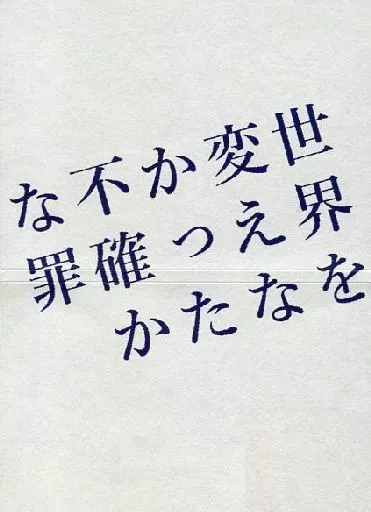 世界を
変えな
かった
不確か
な罪